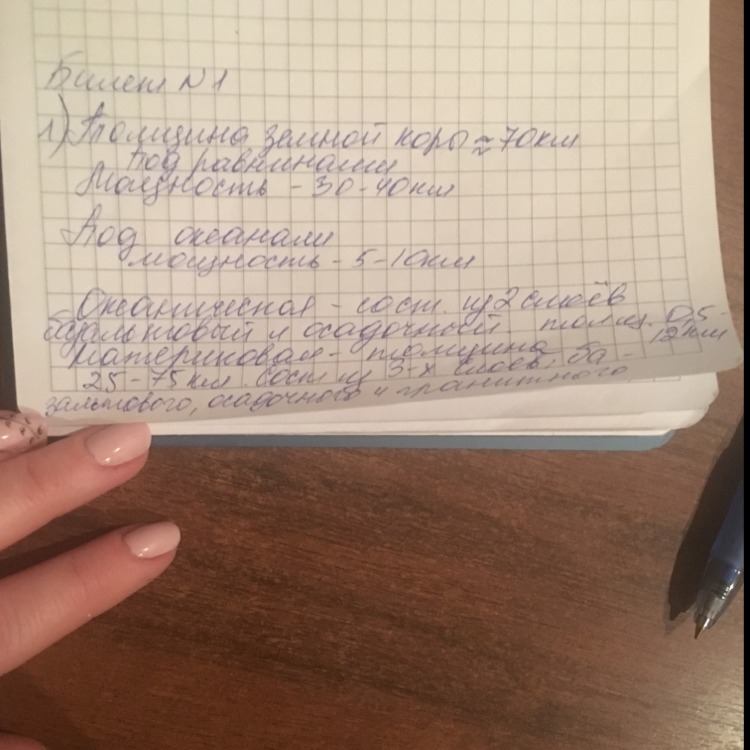 Билет N1
1) Толщина земной коры ≈ 70км
Под равнинами
Мощность - 30-40км
Под океанами
мощность - 5-10км
Океаническая - сост. из 2 слоёв
базальтовый и осадочный. толщ. 0,5-
12км
материковая - толщина
25-75км. сост. из 3-х слоёв, ба-
зальтового, осадочного и гранитного